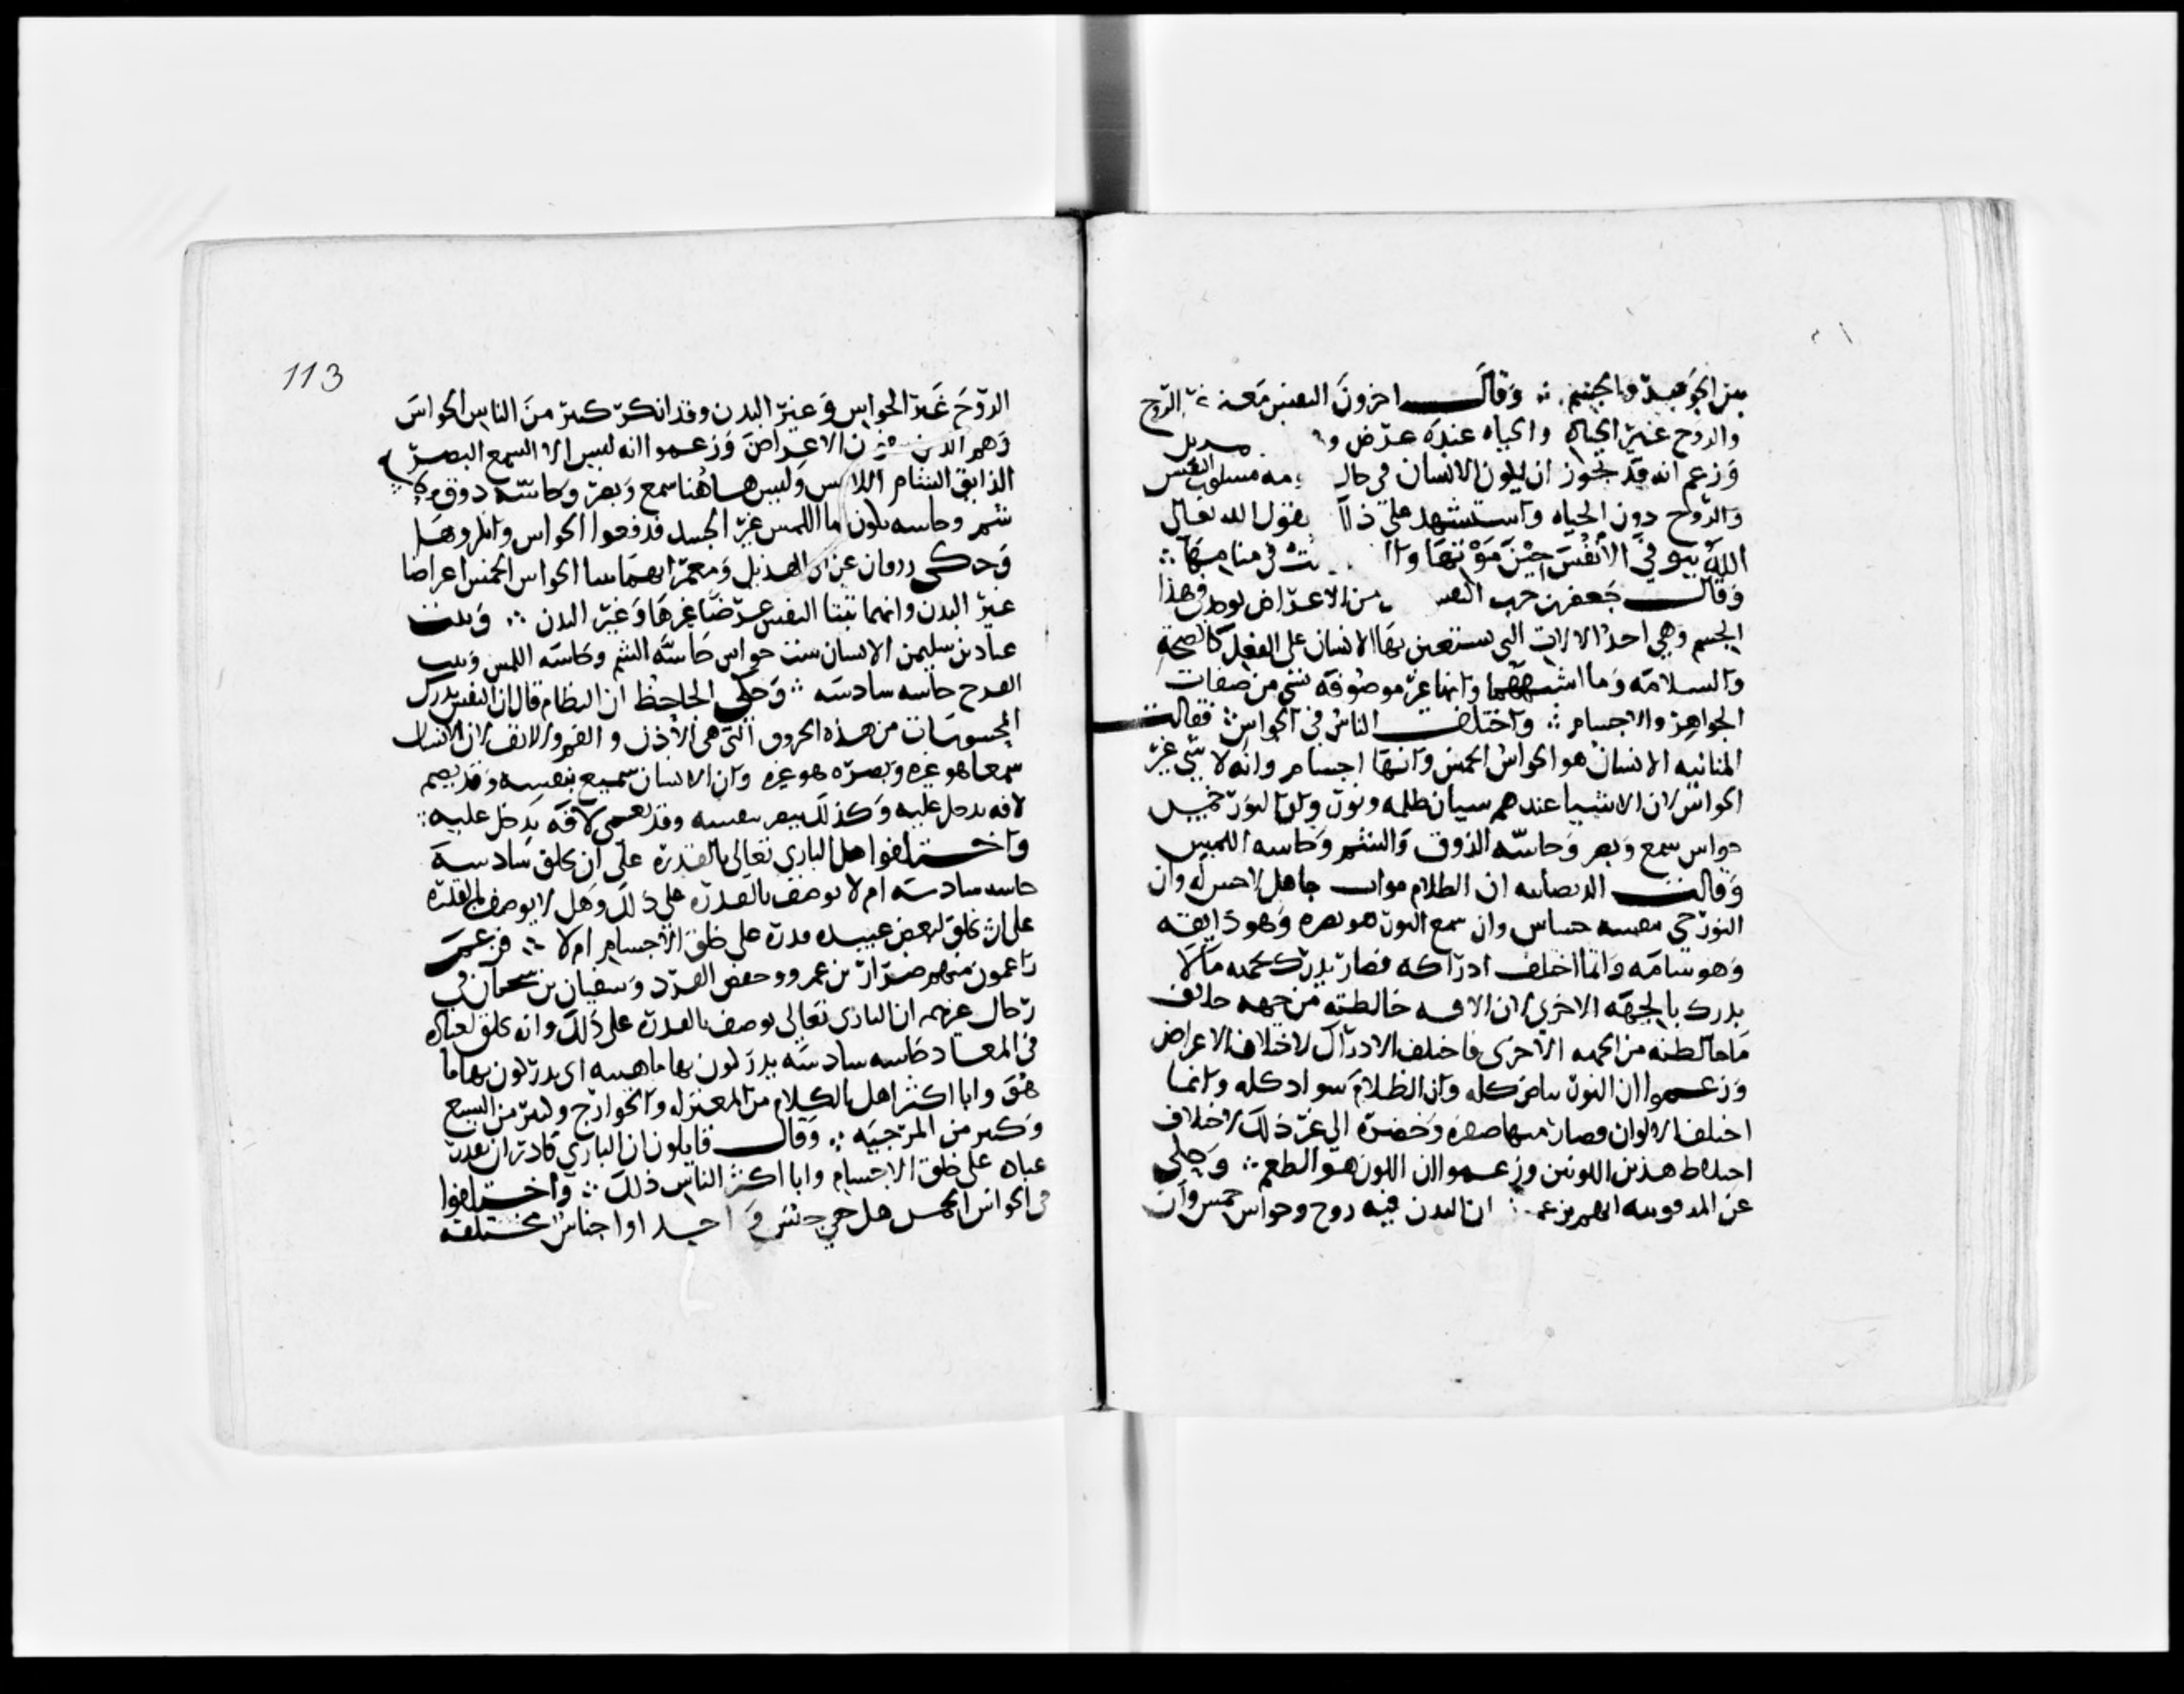 بين الجوهر والجسم ∴ وقال اخرون النفس معنى غير الروح
والروح غير الحياة والحياه عنده عرض و
وزعم انه قد يجوز ان يكون الانسان في حال نومه مسلوب النفس
والروح دون الحياه واستشهد على ذلك بقول الله تعالى
الله يتوفى الانفس حين موتها و في منامها ∴
وقال جعفر بن حرب النفس من الاعراض يوجد في هذا
الجسم وهي احد الالات التي يستعين بها الانسان على الفعل كالصحة
والسلامه وما اشبههما وانها غير موصوفه بشي من صفات
الجواهر والاجسام ∴ واختلف الناس في الحواس ∴ فقالت
المنانيه الانسان هو الحواس الخمس وانها اجسام وانه لا شي غير
الحواس لان الاشيا عندهم سيان ظلمه ونور وان النور خمس
حواس سمع وبصر وحاسه الذوق والشم وحاسه اللمس
وقالت الديصانيه ان الظلام موات جاهل لا حس له وان
النور حي بنفسه حساس وان سمع النور هو بصره وهو ذايقه
وهو شامه وانما اختلف ادراكه فصار يدرك بجهه ما لا
يدرك بالجهه الاخرى لان الافه خالطته من جهه خلاف
ما خالطته من الجهه الاخرى فاختلف الادراك لاختلاف الاعراض
وزعموا ان النور بياض كله وان الظلام سواد كله وانما
اختلف الالوان فصار منها صفره وخضره الى غير ذلك لاختلاف
اختلاط هذين اللونين وزعموا ان اللون هو الطعم ∴ وحكي
عن المرقونيه انهم يزعمون ان البدن فيه روح وحواس خمس وان
113
الروح غير الحواس وغير البدن وقد انكر كثير من الناس الحواس
وهم الذين ينفون الاعراض وزعموا انه ليس الا السميع البصير
الذايق الشام اللامس وليس هاهنا سمع وبصر وحاسه ذوق و
شم وحاسه يكون بها اللمس غير الجسد فدفعوا الحواس وانكروها
وحكى زرقان عن ابي الهذيل ومعمر انهما ثبتا الحواس الخمس اعراضا
غير البدن وانهما ثبتا النفس عرضا غيرها وغير البدن ∴ وثبت
عباد بن سليمن الانسان ست حواس حاسه الشم وحاسه اللمس وثبت
الفرح حاسه سادسه ∴ وحكى الجاحظ ان النظام قال ان النفس يدرك
المحسوسات من هذه الخروق التي هي الاذن و الفم والانف لا ان للانسان
سمعا هو غيره وبصره هو غيره وان الانسان سميع بنفسه وقد يصم
لافه تدخل عليه وكذلك يبصر بنفسه وقد يعمى لافه تدخل عليه ∴
واختلفوا هل البارى تعالى بالقدرة على ان يخلق سادسه
حاسه سادسه ام لا يوصف بالقدره على ذلك وهل لا يوصف بالقدرة
على ان يخلق لبعض عبيده قدرة على خلق الاجسام ام لا ∴ فزعم
زاعمون منهم ضرار بن عمرو وحفص الفرد وسفيان بن سحبان في
رجال غيرهم ان البارى تعالى يوصف بالقدرة على ذلك وانه يخلق لعباده
في المعاد حاسه سادسه يدركون بها ماهيته اي يدركون بها ما
هو وابا اكثر اهل الكلام من المعتزله والخوارج وكثير من الشيع
وكثير من المرجيه ∴ وقال قايلون ان البارى قادر ان يقدر
عباده على خلق الاجسام وابا اكثر الناس ذلك ∴ واختلفوا
في الحواس الخمس هل هي جنس واحد او اجناس مختلفه